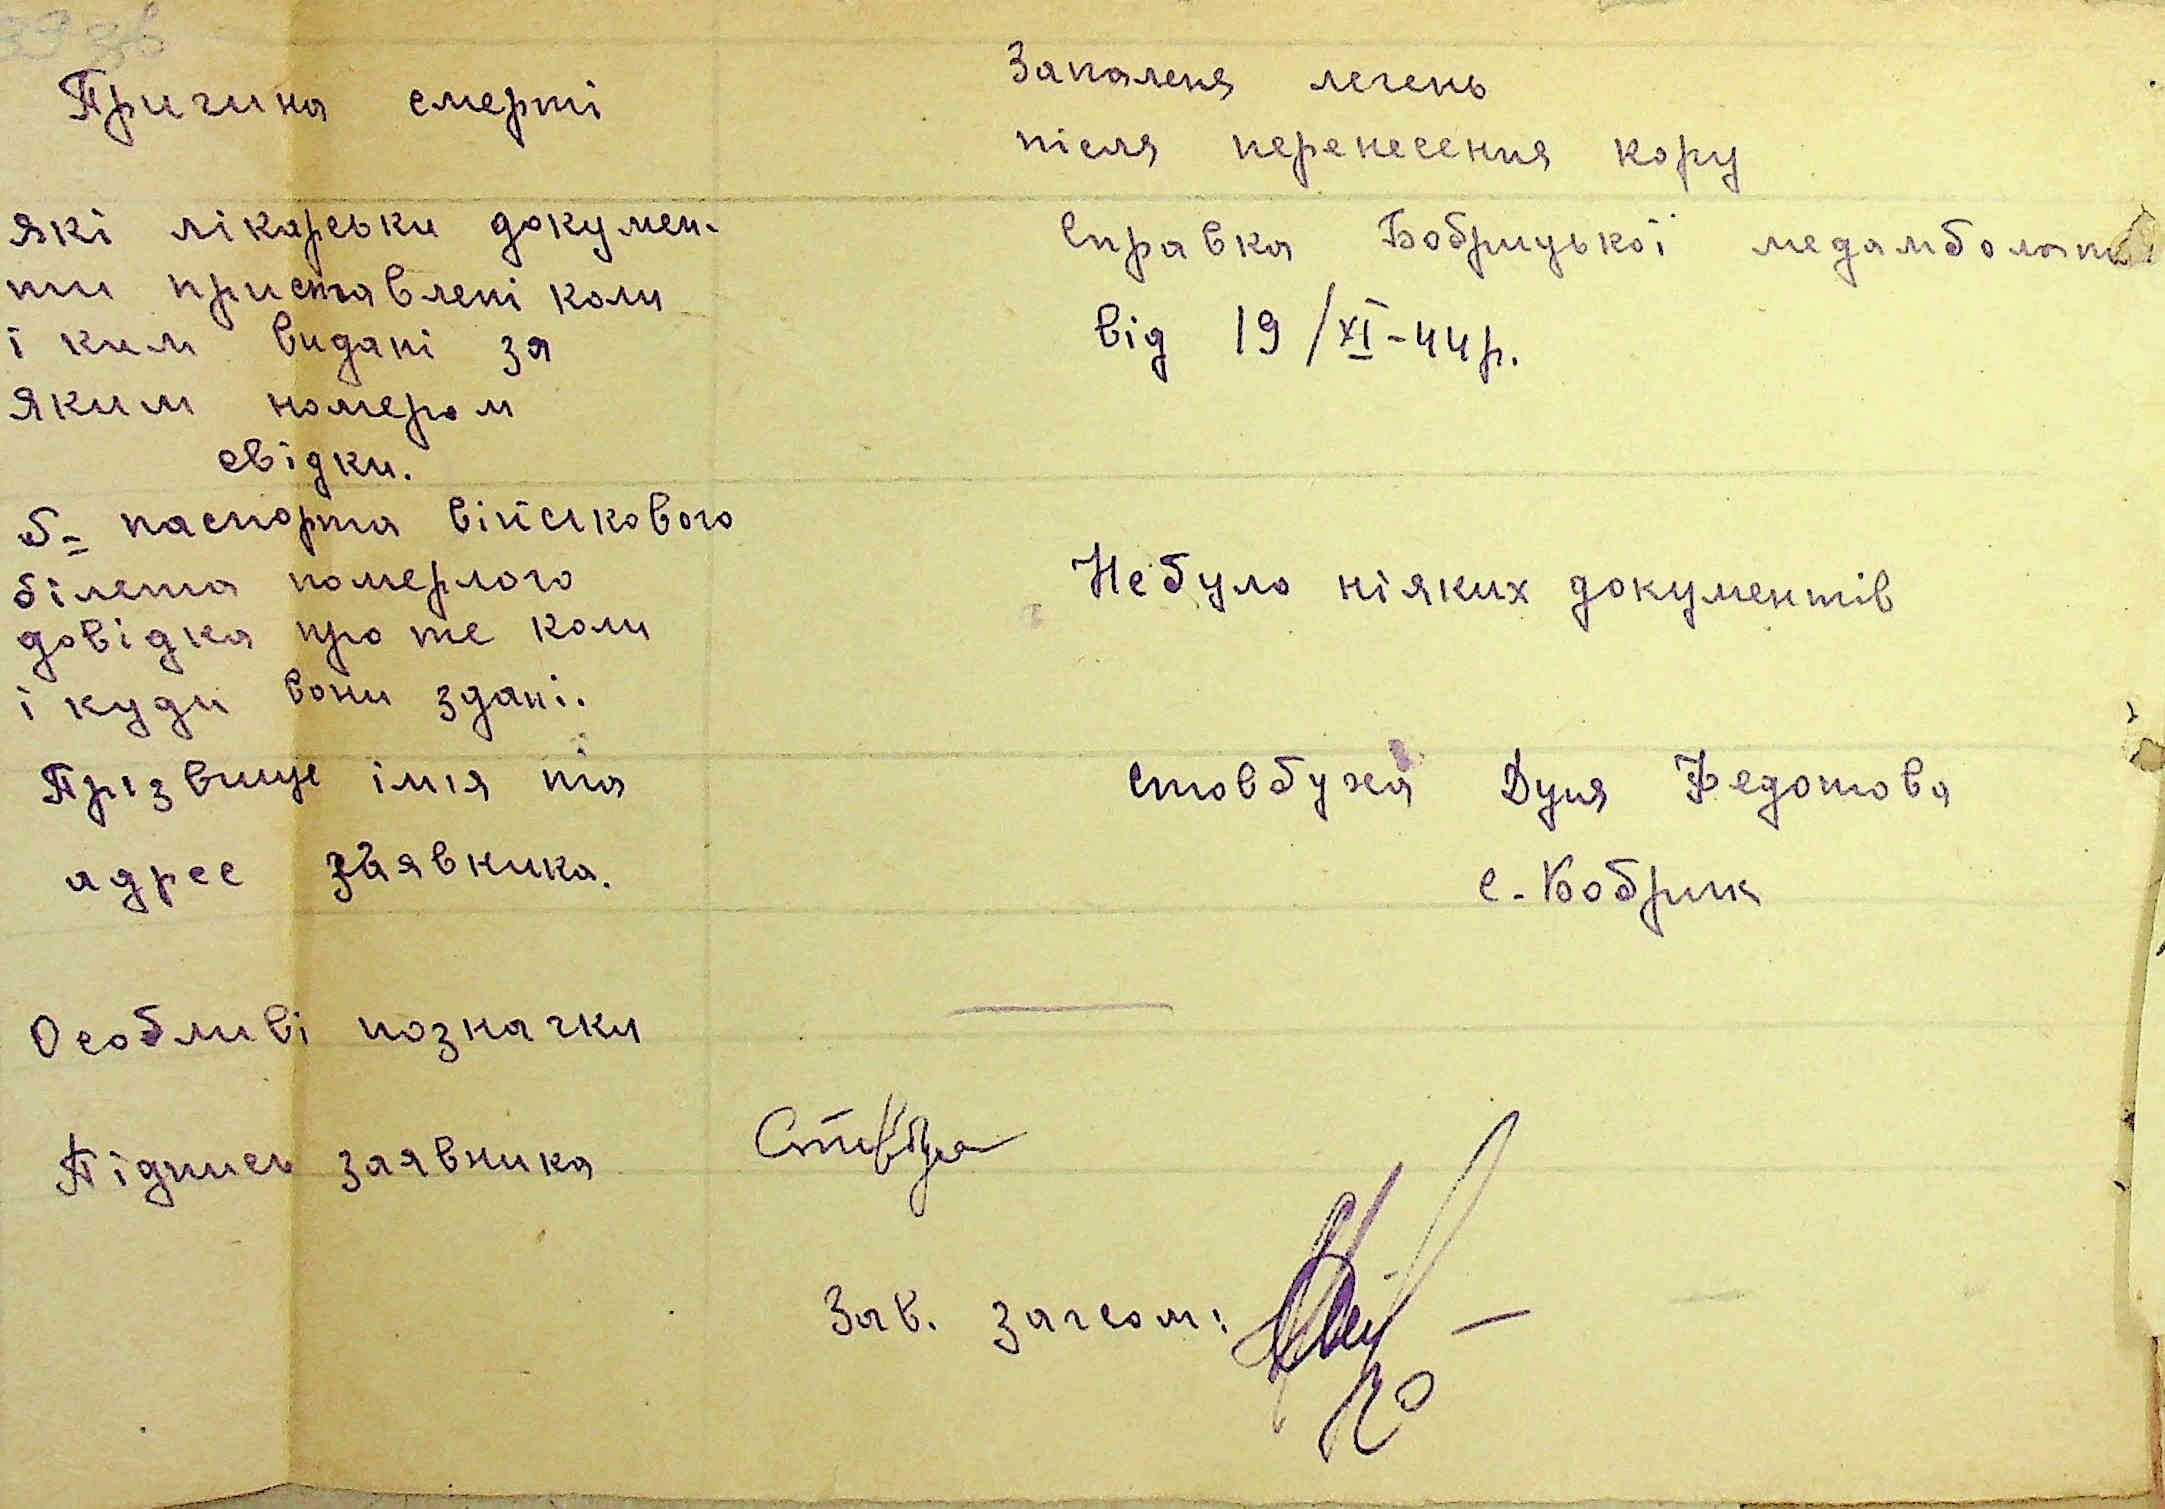 37 зв
Причина смерті
Запаленя легень
після перенесення кору
які лікарські докумен-
ти приставлені коли
і ким видані за
яким номером
свідки.
Справка Бобрицької медамболат
від 19/XI-44р.
паспорта військового
білета померлого
довідка про те коли
і куди вони здані.
Не було ніяких документів
Прізвище імя та
адрес заявника.
Стовбуха Дуня Федотова
с. Бобрик
Особливі позначки
Підпись заявника
Зав. загсом: